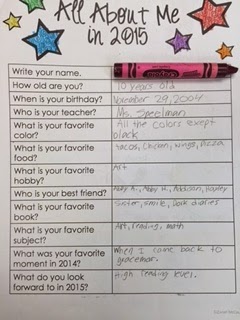 All About Me
in 2015
Write your name.
How old are you? 10 years old
When is your birthday? November 29, 2004
Who is your teacher? Ms. Speelman
What is your favorite color? All the colors exept
black
What is your favorite food? tacos, chicken, wings, pizza
What is your favorite hobby? Art
Who is your best friend? Abby A., Abby H., Addison, Hayley
What is your favorite book? Sister, smile, Dork diaries
What is your favorite subject? Art, reading, math
What was your favorite moment in 2014? When I came back to
gracemor.
What do you look forward to in 2015? High reading level.